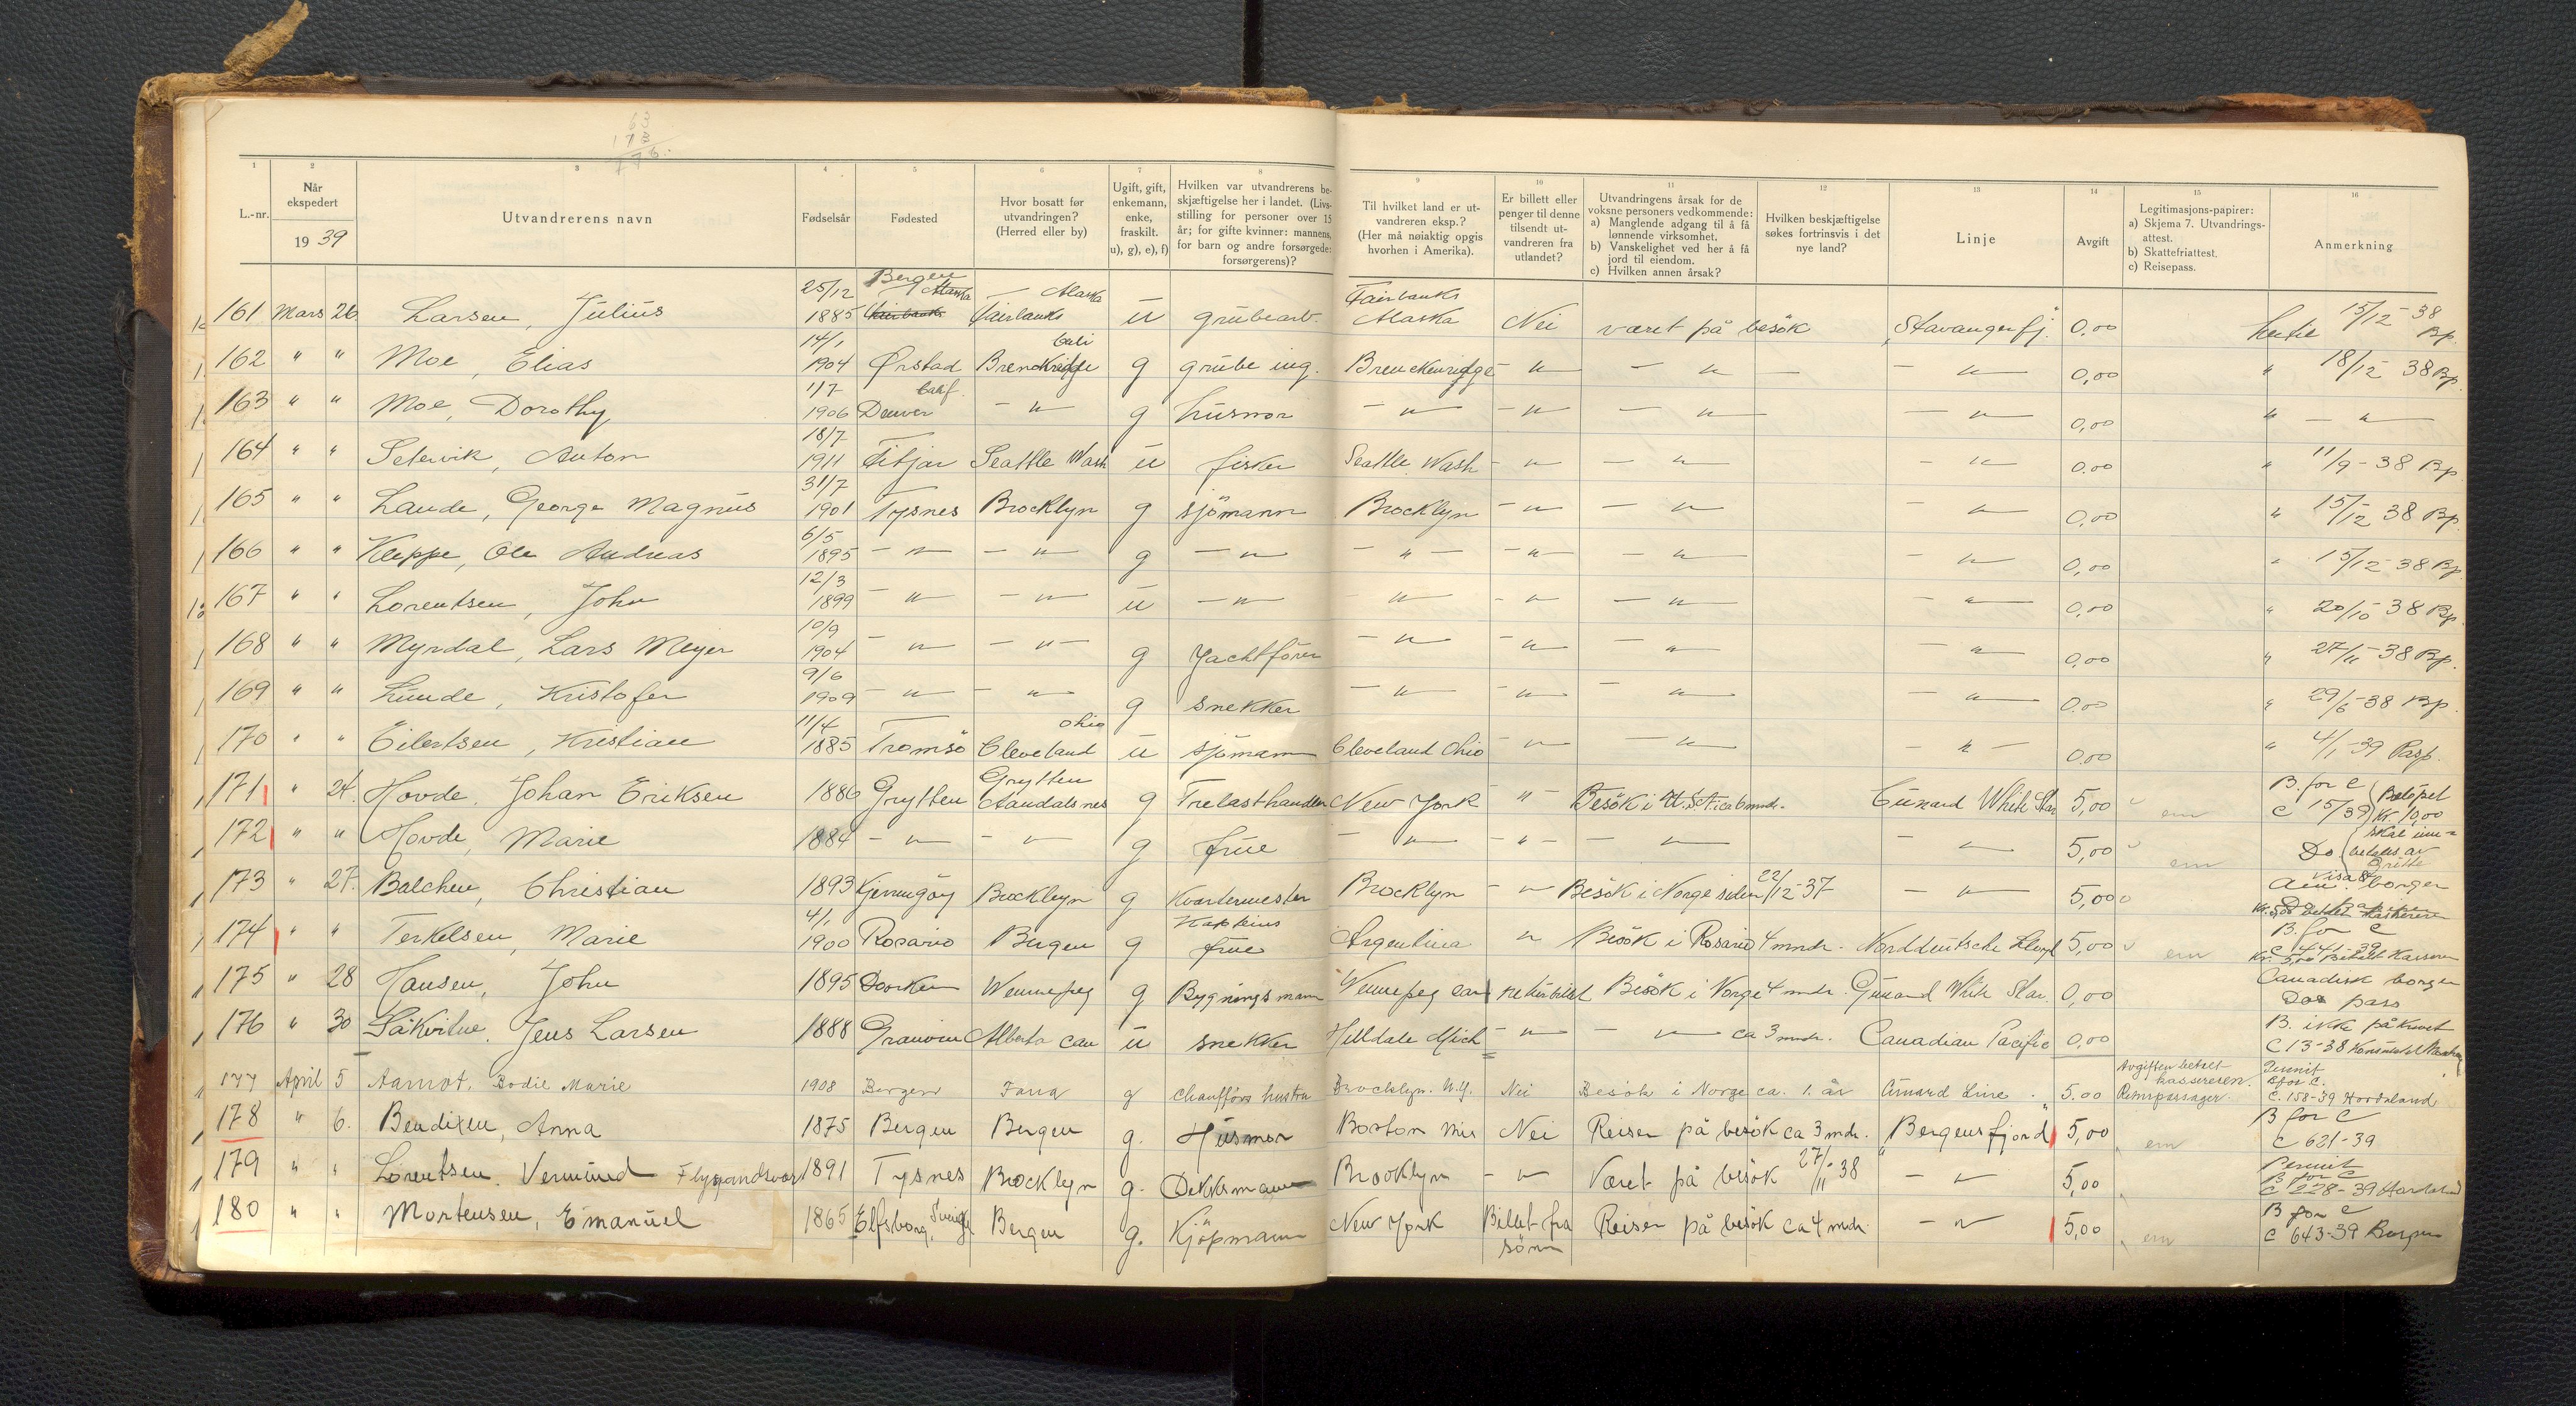 63
1 2 3 4 5 6 7 8 9 10 11 12 13 14 15 16
L.-nr. Når ekspedert 1939 Utvandrerens navn Fødselsår Fødested Hvor bosatt før utvandringen? (Herred eller by) Ugift, gift, enkemann, enke, fraskilt. u), g), e), f) Hvilken var utvandrerens beskjæftigelse her i landet. (Livsstilling for personer over 15 år; for gifte kvinner: mannens, for barn og andre forsørgede: forsørgerens)? Til hvilket land er utvandreren eksp.? (Her må nøiaktig opgis hvorhen i Amerika). Er billett eller penger til denne tilsendt utvandreren fra utlandet? Utvandringens årsak for de voksne personers vedkommende: a) Manglende adgang til å få lønnende virksomhet. b) Vanskelighet ved her å få jord til eiendom. c) Hvilken annen årsak? Hvilken beskjæftigelse søkes fortrinsvis i det nye land? Linje Avgift Legitimasjons-papirer: a) Skjema 7. Utvandringsattest. b) Skattefriattest. c) Reisepass. Anmerkning
161 Mars 26 Larsen, Julius 25/12 1885 Bergen Alaska Fairbanks Alaska Fairbanks u grubearb. Fairbanks Alaska Nei været på besøk Stavangerfj. 0.00 15/12-38 Bp.
162 " " Moe, Elias 14/1 1904 Ørstad Brenckridge Cali g grube ing. Brenckenridge - " - - " - - " - 0,00 " 18/12 38 Bp.
163 " " Moe, Dorothy 1/7 1906 Denver Calif. - " - g husmor - " - - " - - " - - " - 0,00 " - " -
164 " " Setervik, Anton 18/7 1911 Fitjar Seattle Wash u fisker Seattle Wash - " - - " - - " - 0.00 " 11/9-38 Bp
165 " " Lande, George Magnus 31/7 1901 Tysnes Brocklyn g sjömann Brocklyn - " - - " - - " - 0,00 " 15/12 38 Bp.
166 " " Kleppe, Ole Andreas 6/5 1895 - " - - " - g - " - - " - - " - - " - - " - 0,00 " 15/12-38 Bp
167 " " Lorentsen, John 12/3 1899 - " - - " - u - " - - " - - " - - " - - " - 0,00 " 20/10-38 Bp.
168 " " Myrdal, Lars Meyer 10/9 1904 - " - - " - g Yachtförer - " - - " - - " - - " - 0,00 " 27/11-38 Bp.
169 " " Lunde, Kristofer 9/6 1909 - " - - " - g snekker - " - - " - - " - - " - 0.00 " 29/6-38 Bp.
170 " " Eilertsen, Kristian 11/4 1885 Tromsö Cleveland Ohio u sjömann Cleveland Ohio - " - - " - - " - 0.00 " 4/1-39 Pasp.
171 " 24. Hovde, Johan Eriksen 1886 Grytten Grytten Aandalsnes g Trelasthandler New York " Besök i U.S.A ca 6 mndr. Cunard White Star 5,00 em B. for C C 15/39 Beløpet kr. 10,00
172 " " Hovde, Marie 1884 - " - - " - g frue - " - - " - - " - - " - 5,00 em Do. skal inn- betales av
173 " 27. Balchen, Christian 1893 Kjerringöy Bucklyn g Kvartermester Brocklyn - " Besök i Norge siden 22/12-37 - " - 5,00 Visa 8 Am. borger
174 " " Terkelsen, Marie 4/1 1900 Rosario Bergen g Kapteins frue Argentina " Besök i Rosario 4 mndr. Norddeutsche Lloyd 5,00 em B. for C C 441-39 Kr. 5,00 betalt Kasseren
175 " 28 Hansen, John 1895 Wennepeg g Bygningsmann Wennepeg Can returbilet Besök i Norge 4 mdr. Cunard White Star. 0,00 Canadisk borger pass
176 " 30 Såkvitne, Jens Larsen 1888 Granvin Alberta Can u snekker Hilldale Mich - " - - " - ca 3 mndr. Canadian Pacific 0,00 B. ikke påkrevet C 13-38
177 April 5 Aamot, Bodie Marie 1908 Bergen Fana g chaufförs hustru Brocklyn. N.Y. Nei Besök i Norge ca. 1. år Cunard Line. 5.00 Avgiften betalt kassereren. Returpassager. Permit B for C. C. 158-39 Hordaland
178 " 6. Bendixen, Anna 1875 Bergen Bergen g. Husmor Boston Nei Reiser på besök ca 3 mdr. "Bergensfjord" 5,00 em B for C C 621-39
179 " " Lorentsen, Vermund Flygandsvær 1891 Tysnes Brocklyn g. Dekksmann Brooklyn - " Været på besök 27/11-38 - " - 5,00 Permit B for C C 228-39 Hordaland
180 " " Mortensen, Emanuel 1865 Elfsborg, Sverige Bergen g. Kjöpmann New York Billet fra sönn Reiser på besök ca 4 mdr. - " - 5,00 em B for C C 643-39 Bergen